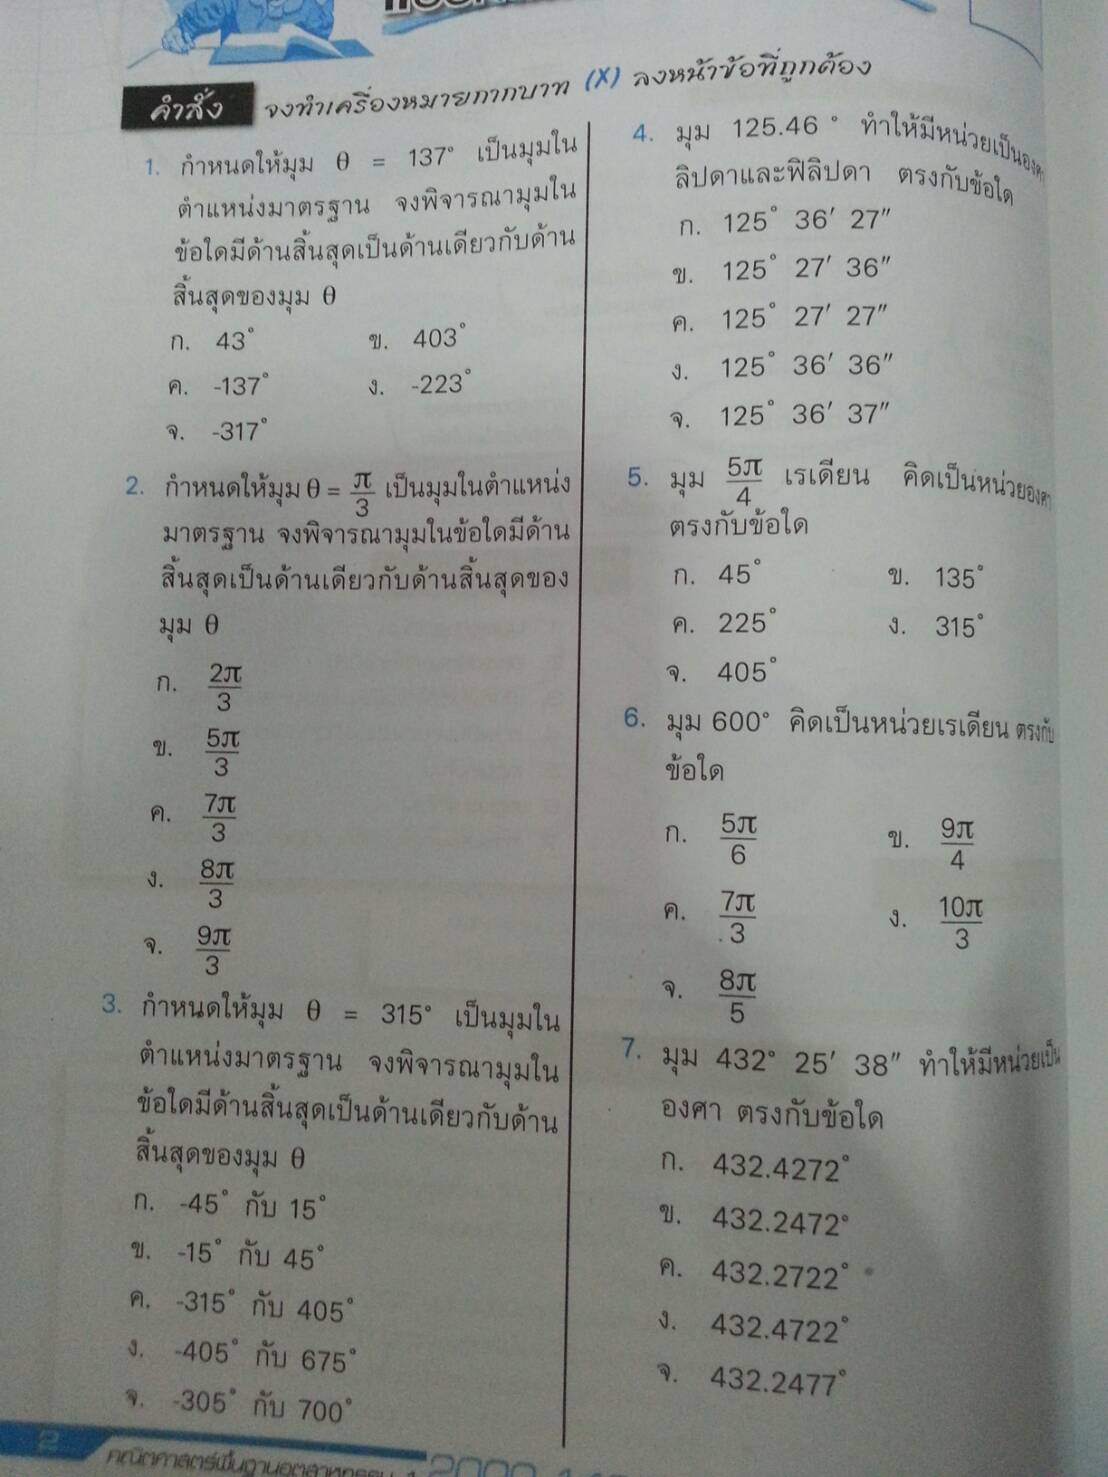 คำสั่ง จงทำเครื่องหมายกากบาท (X) ลงหน้าข้อที่ถูกต้อง
1. กำหนดให้มุม θ = 137° เป็นมุมใน
ตำแหน่งมาตรฐาน จงพิจารณามุมใน
ข้อใดมีด้านสิ้นสุดเป็นด้านเดียวกับด้าน
สิ้นสุดของมุม θ
ก. 43° ข. 403°
ค. -137° ง. -223°
จ. -317°
2. กำหนดให้มุม θ = π/3 เป็นมุมในตำแหน่ง
มาตรฐาน จงพิจารณามุมในข้อใดมีด้าน
สิ้นสุดเป็นด้านเดียวกับด้านสิ้นสุดของ
มุม θ
ก. 2π/3
ข. 5π/3
ค. 7π/3
ง. 8π/3
จ. 9π/3
3. กำหนดให้มุม θ = 315° เป็นมุมใน
ตำแหน่งมาตรฐาน จงพิจารณามุมใน
ข้อใดมีด้านสิ้นสุดเป็นด้านเดียวกับด้าน
สิ้นสุดของมุม θ
ก. -45° กับ 15°
ข. -15° กับ 45°
ค. -315° กับ 405°
ง. -405° กับ 675°
จ. -305° กับ 700°
4. มุม 125.46° ทำให้มีหน่วยเป็นองศา
ลิปดาและฟิลิปดา ตรงกับข้อใด
ก. 125° 36′ 27″
ข. 125° 27′ 36″
ค. 125° 27′ 27″
ง. 125° 36′ 36″
จ. 125° 36′ 37″
5. มุม 5π/4 เรเดียน คิดเป็นหน่วยองศา
ตรงกับข้อใด
ก. 45° ข. 135°
ค. 225° ง. 315°
จ. 405°
6. มุม 600° คิดเป็นหน่วยเรเดียน ตรงกับ
ข้อใด
ก. 5π/6 ข. 9π/4
ค. 7π/3 ง. 10π/3
จ. 8π/5
7. มุม 432° 25′ 38″ ทำให้มีหน่วยเป็น
องศา ตรงกับข้อใด
ก. 432.4272°
ข. 432.2472°
ค. 432.2722°
ง. 432.4722°
จ. 432.2477°
2 คณิตศาสตร์พื้นฐานอุตสาหกรรม